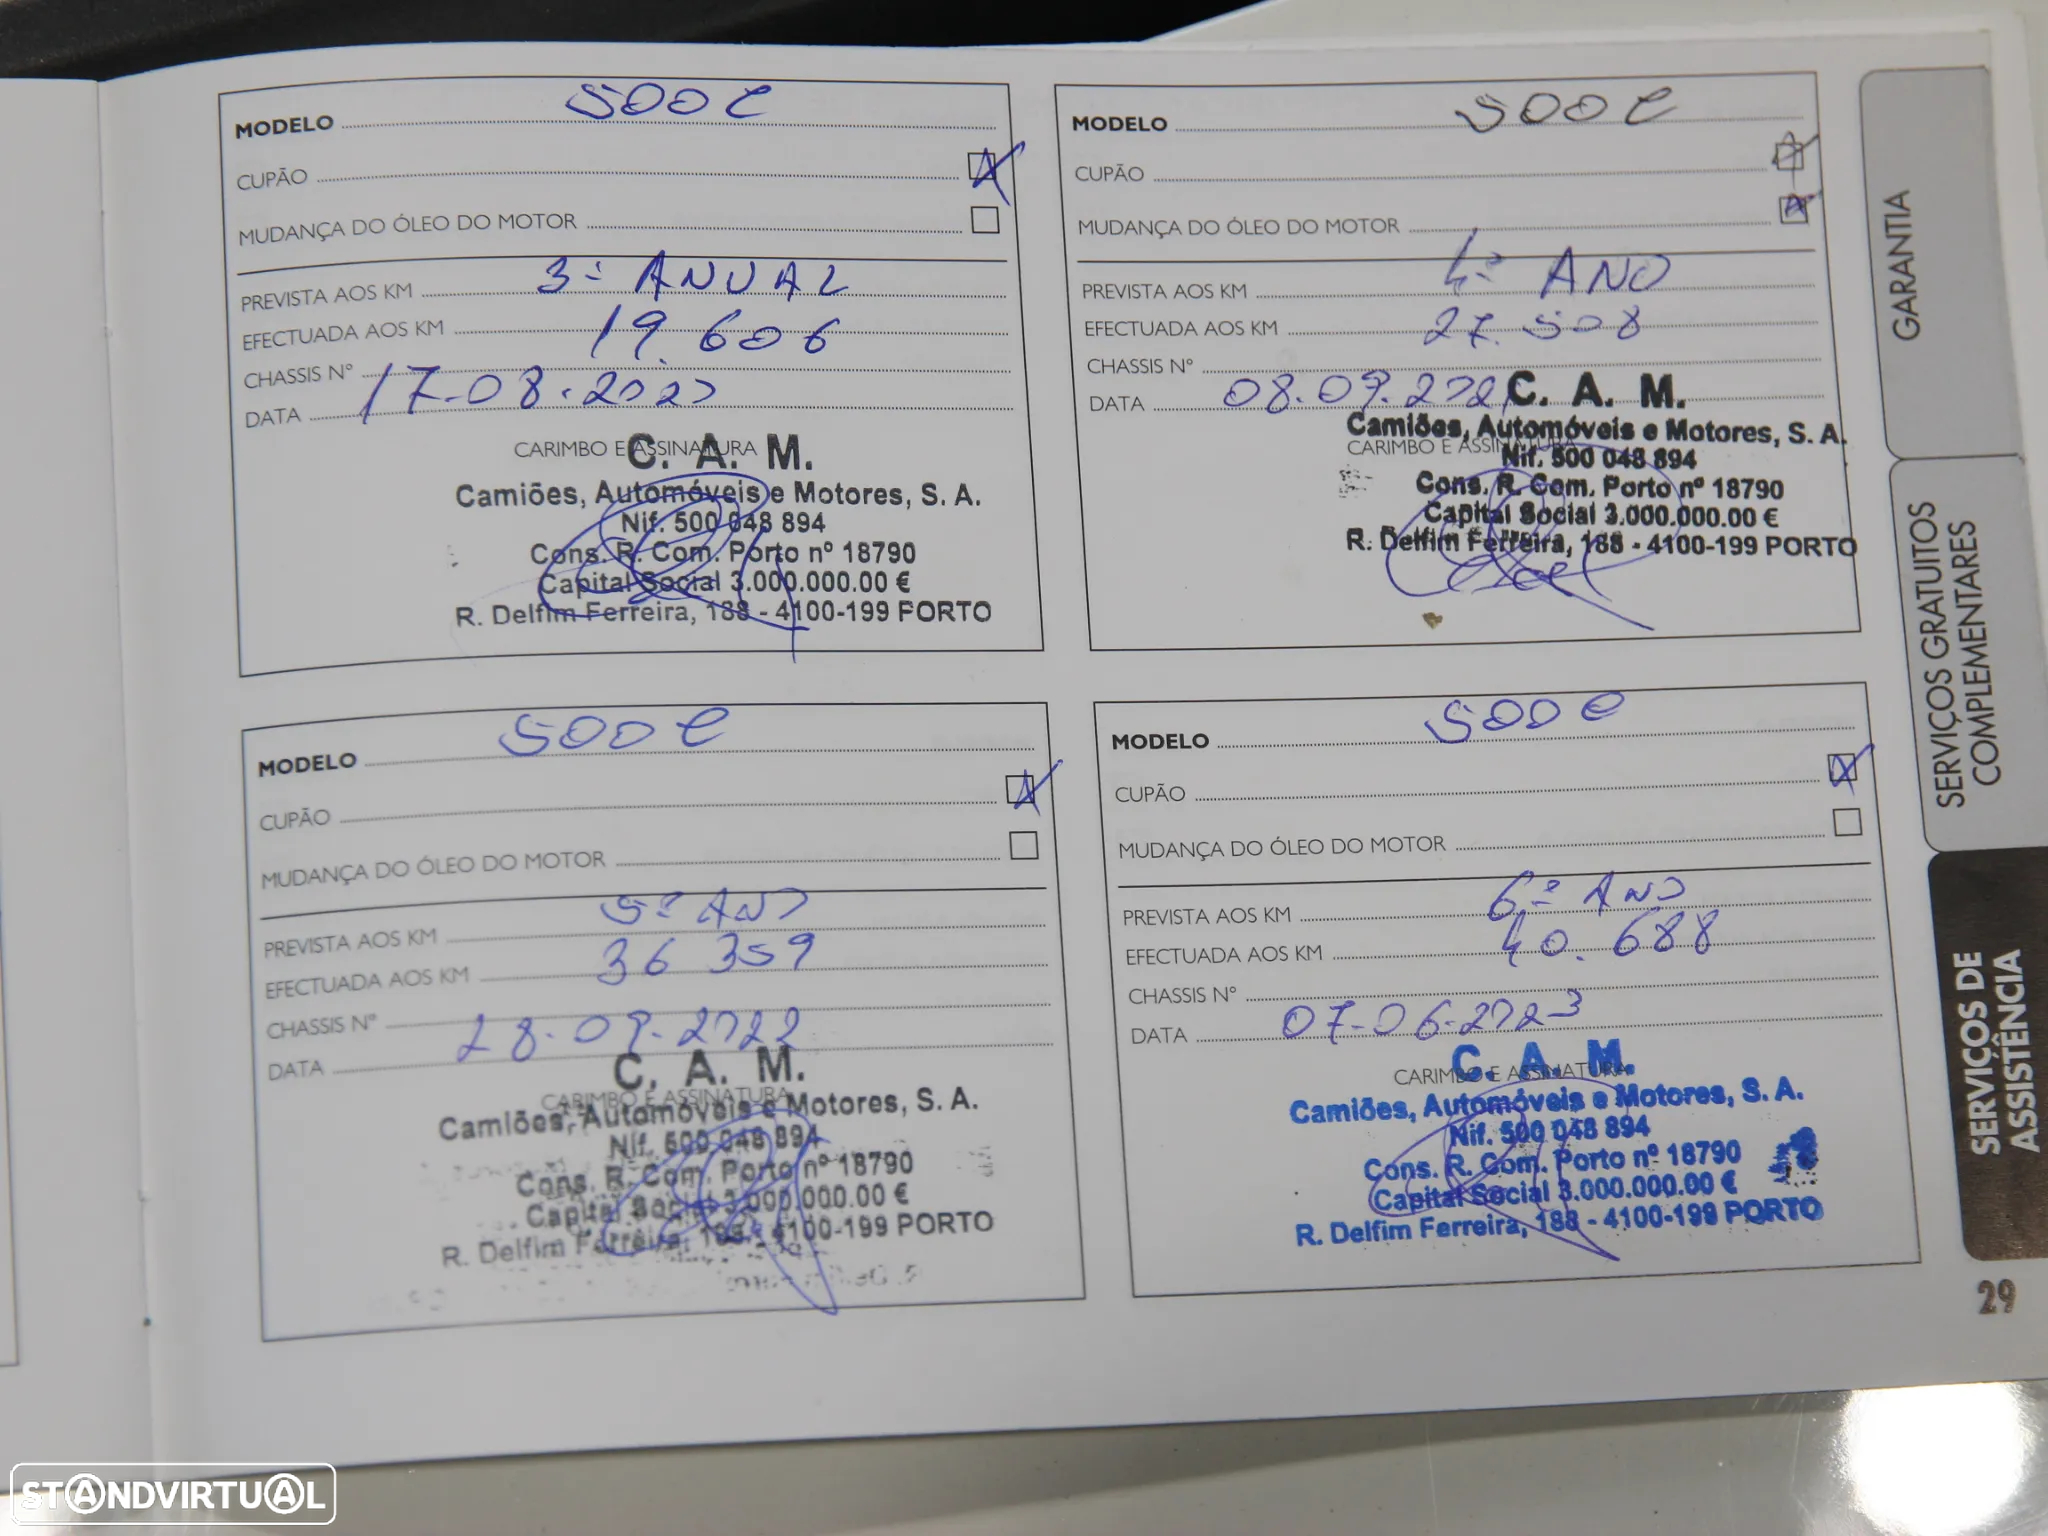 MODELO 500 C
CUPÃO
MUDANÇA DO ÓLEO DO MOTOR
PREVISTA AOS KM 3º ANUAL
EFECTUADA AOS KM 19.606
CHASSIS Nº
DATA 17-08-2020
CARIMBO E ASSINATURA
C. A. M.
Camiões, Automóveis e Motores, S. A.
Nif. 500 048 894
Cons. R. Com. Porto nº 18790
Capital Social 3.000.000.00 €
R. Delfim Ferreira, 188 - 4100-199 PORTO
MODELO 500 C
CUPÃO
MUDANÇA DO ÓLEO DO MOTOR
PREVISTA AOS KM 4º ANO
EFECTUADA AOS KM 27.508
CHASSIS Nº
DATA 08.09.2021
CARIMBO E ASSINATURA
C. A. M.
Camiões, Automóveis e Motores, S. A.
Nif. 500 048 894
Cons. R. Com. Porto nº 18790
Capital Social 3.000.000.00 €
R. Delfim Ferreira, 188 - 4100-199 PORTO
MODELO 500 C
CUPÃO
MUDANÇA DO ÓLEO DO MOTOR
PREVISTA AOS KM 5º ANO
EFECTUADA AOS KM 36 359
CHASSIS Nº
DATA 28-09-2022
CARIMBO E ASSINATURA
C. A. M.
Camiões, Automóveis e Motores, S. A.
Nif. 500 048 894
Cons. R. Com. Porto nº 18790
Capital Social 3.000.000.00 €
R. Delfim Ferreira, 188 - 4100-199 PORTO
MODELO 500 C
CUPÃO
MUDANÇA DO ÓLEO DO MOTOR
PREVISTA AOS KM 6º ANO
EFECTUADA AOS KM 40.688
CHASSIS Nº
DATA 07-06-2023
CARIMBO E ASSINATURA
C. A. M.
Camiões, Automóveis e Motores, S. A.
Nif. 500 048 894
Cons. R. Com. Porto nº 18790
Capital Social 3.000.000.00 €
R. Delfim Ferreira, 188 - 4100-199 PORTO
GARANTIA
SERVIÇOS GRATUITOS
COMPLEMENTARES
SERVIÇOS DE
ASSISTÊNCIA
29
STANDVIRTUAL